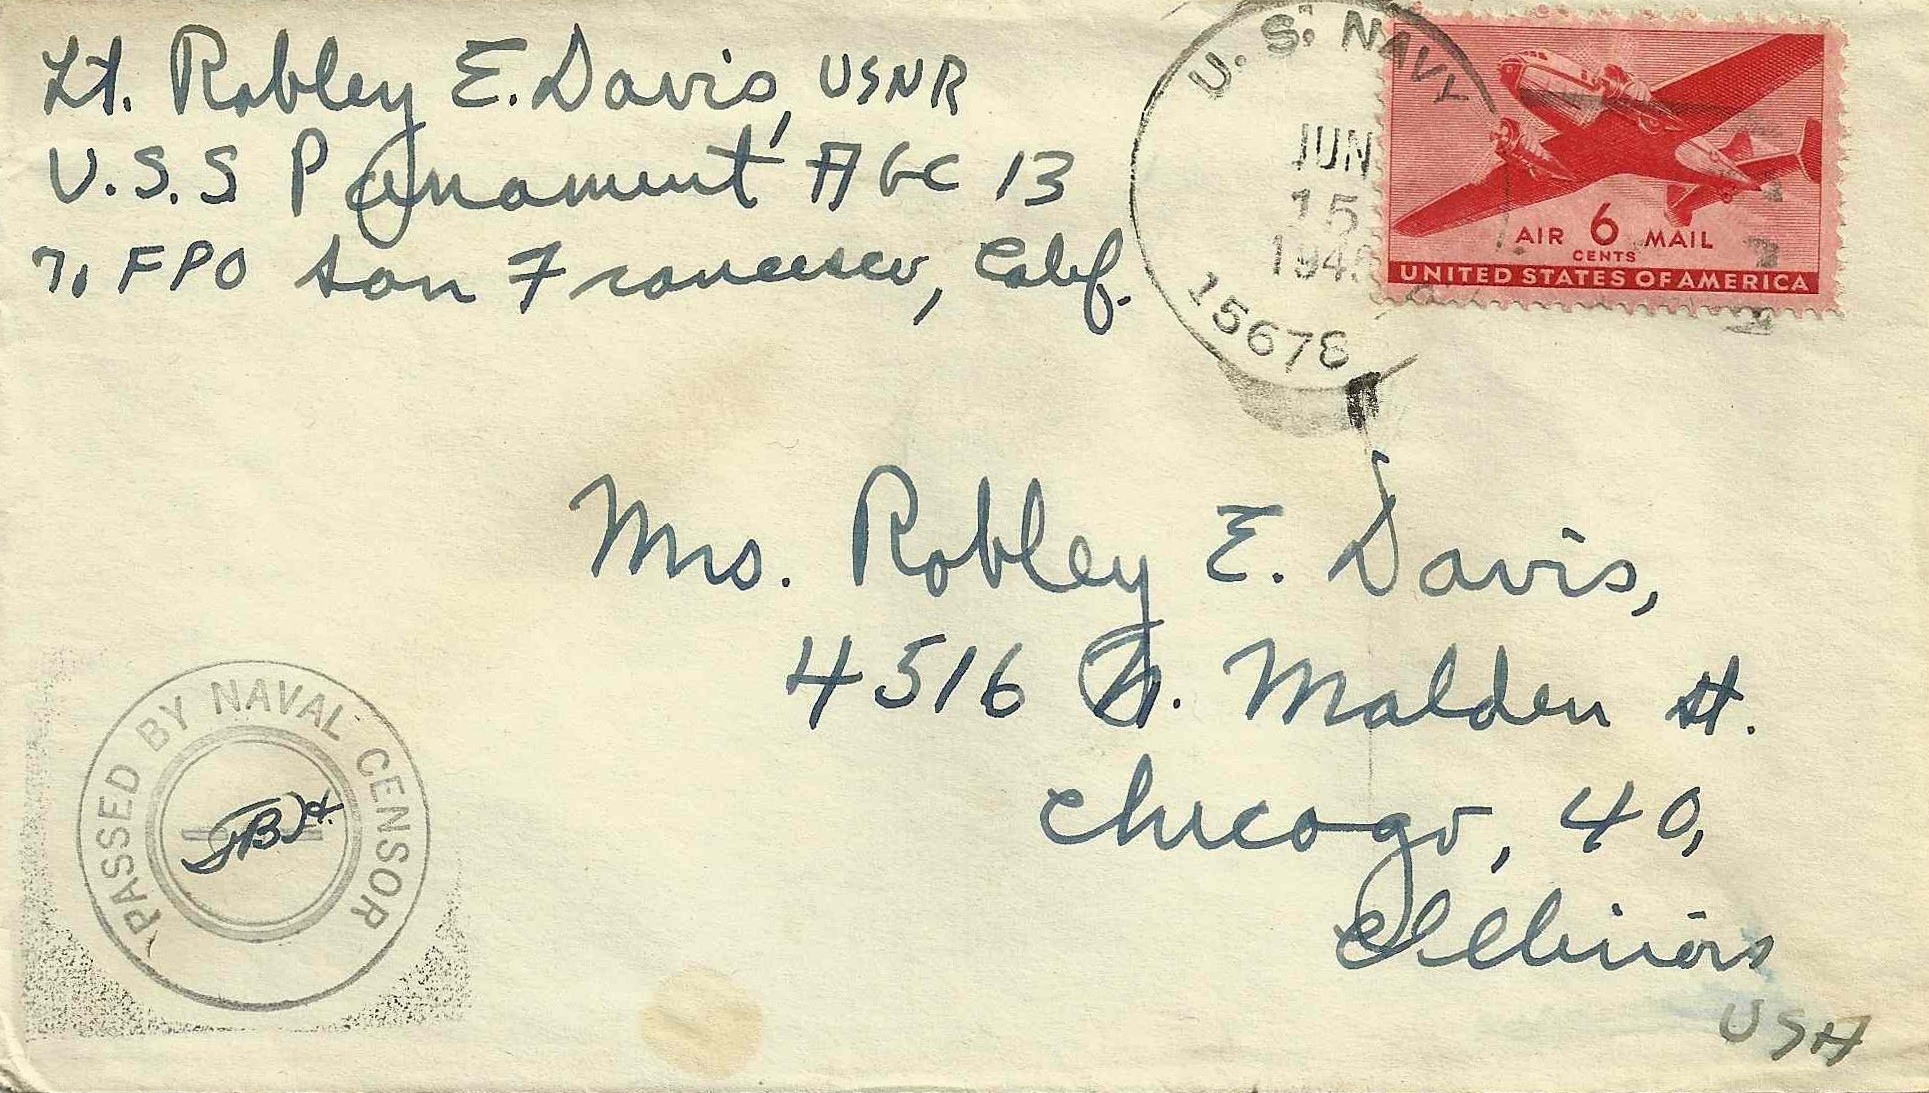 Lt. Robley E. Davis, USNR
U.S.S Panamint AGC 13
℅ FPO San Francisco, Calif.
U. S. NAVY
JUN
15
1945
15678
AIR 6 MAIL
CENTS
UNITED STATES OF AMERICA
Mrs. Robley E. Davis,
4516 N. Malden St.
Chicago, 40,
Illinois
USA
PASSED BY NAVAL CENSOR